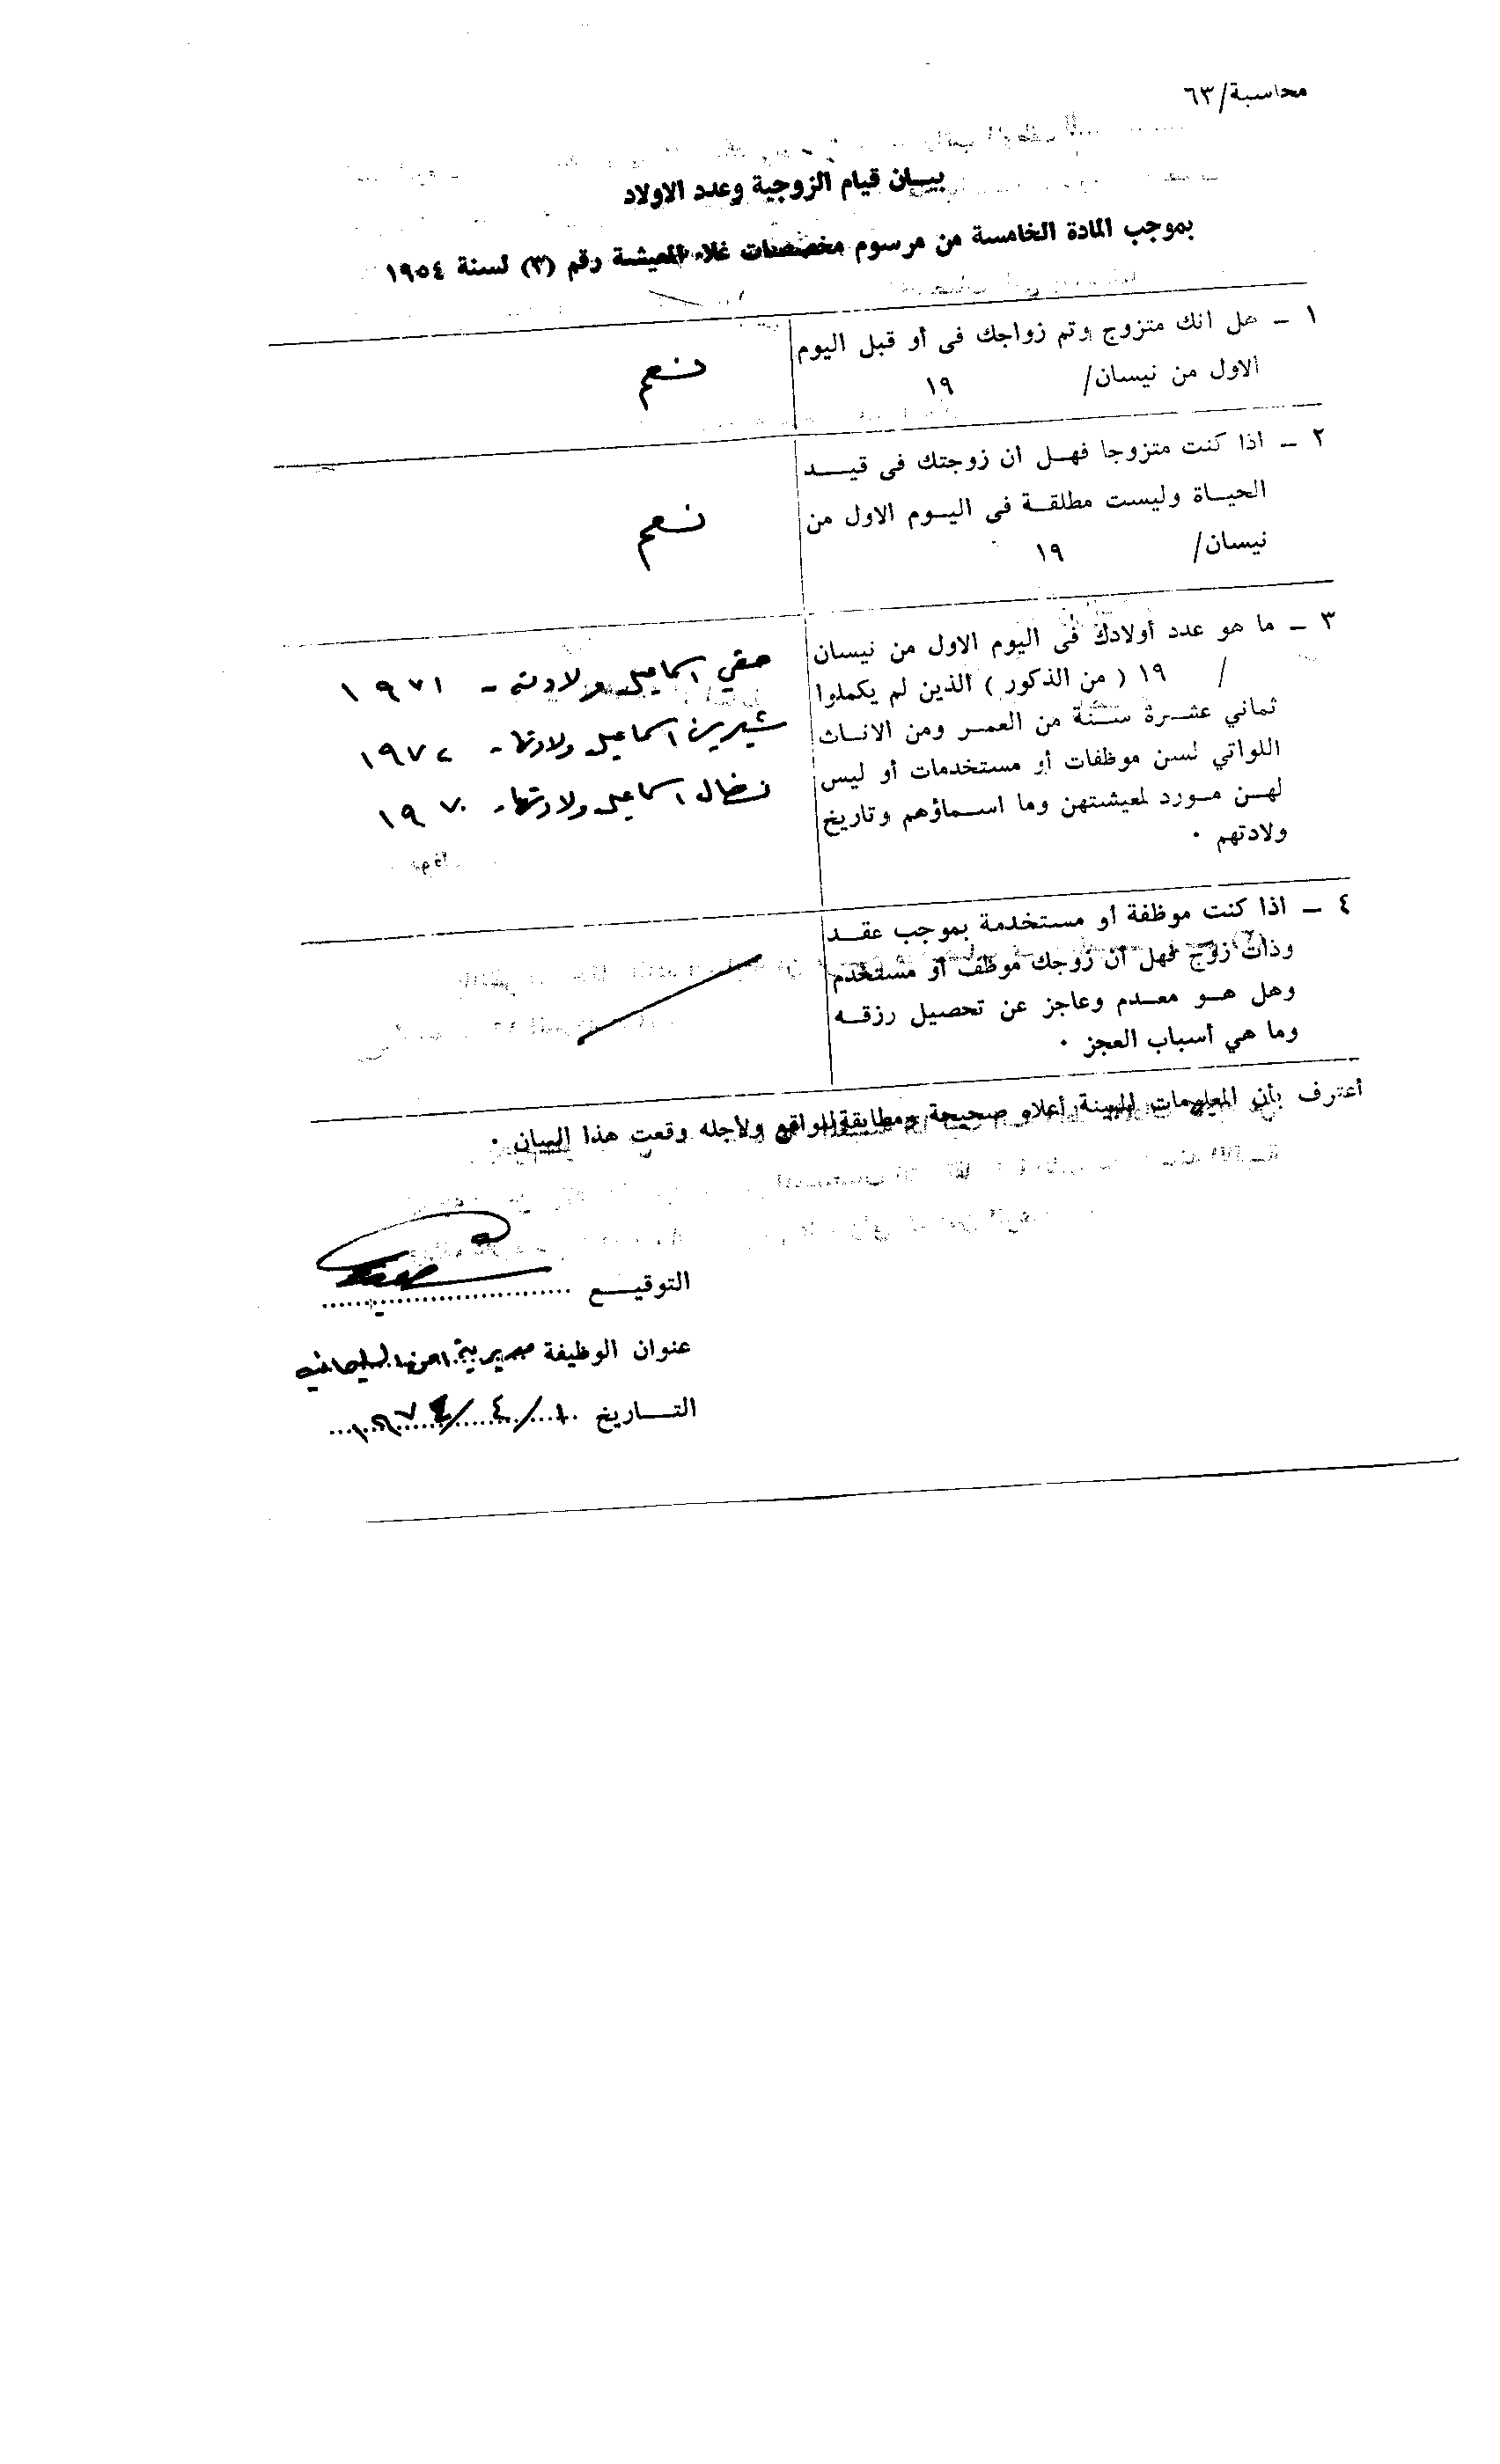 محاسبة/٦٣
بيـــان قيام الزوجية وعدد الاولاد
بموجب المادة الخامسة من مرسوم مخصصات غلاء المعيشة رقم (٣) لسنة ١٩٥٤
١ – هل انك متزوج وتم زواجك في أو قبل اليوم
الاول من نيسان/ ١٩
نعم
٢ – اذا كنت متزوجا فهــل ان زوجتك في قيــــد
الحيـــاة وليست مطلقــة في اليــوم الاول من
نيسان/ ١٩
نعم
٣ – ما هو عدد أولادك في اليوم الاول من نيسان
/ ١٩ ( من الذكور ) الذين لم يكملوا
ثماني عشــرة ســنة من العمــر ومن الانــاث
اللواتي لسن موظفات أو مستخدمات أو ليس
لهــن مــورد لمعيشتهن وما اســماؤهم وتاريخ
ولادتهم ٠
اسماعيل ولادته - ١٩٧١
شيرين اسماعيل ولادتها - ١٩٧٢
نضال اسماعيل ولادتها - ١٩٧٠
٤ – اذا كنت موظفة أو مستخدمة بموجب عقــد
وذات زوج فهل ان زوجك موظف أو مستخدم
وهل هــو معــدم وعاجز عن تحصيل رزقــه
وما هي أسباب العجز ٠
أعترف بأن المعلومات المبينة أعلاه صحيحة ومطابقة للواقع ولاجله وقعت هذا البيان ٠
التوقيـــع
عنوان الوظيفة مديرية امن السليمانيه
التـــاريخ ١٠/ ٤ /١٩٧٤